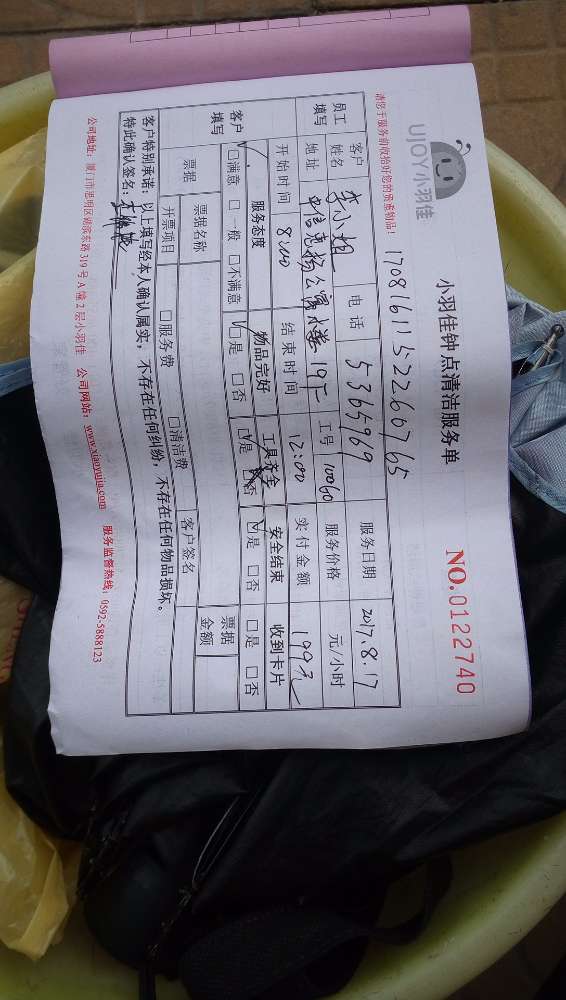 UJOY小羽佳
小羽佳钟点清洁服务单
NO.0122740
请您于服务前收拾好您的贵重物品!
17081611522660765
员工填写
客户姓名 李小姐 电话 5365969 服务日期 2017.8.17
地址 19F 工号 10060 服务价格 元/小时
开始时间 8:00 结束时间 12:00 实付金额 199元
客户填写
服务态度 物品完好 工具齐全 安全结束 收到卡片
□满意 □一般 □不满意 □是 □否 □是 □否 □是 □否 □是 □否
票据 票据名称 票据金额
开票项目 □服务费 □清洁费 客户签名
客户特别承诺:以上填写经本人确认属实,不存在任何纠纷,不存在任何物品损坏。
特此确认签名:
公司地址:厦门市思明区湖滨东路319号A幢2层小羽佳 公司网站:www.xiaoyujia.com 服务监督热线:0592-5888123